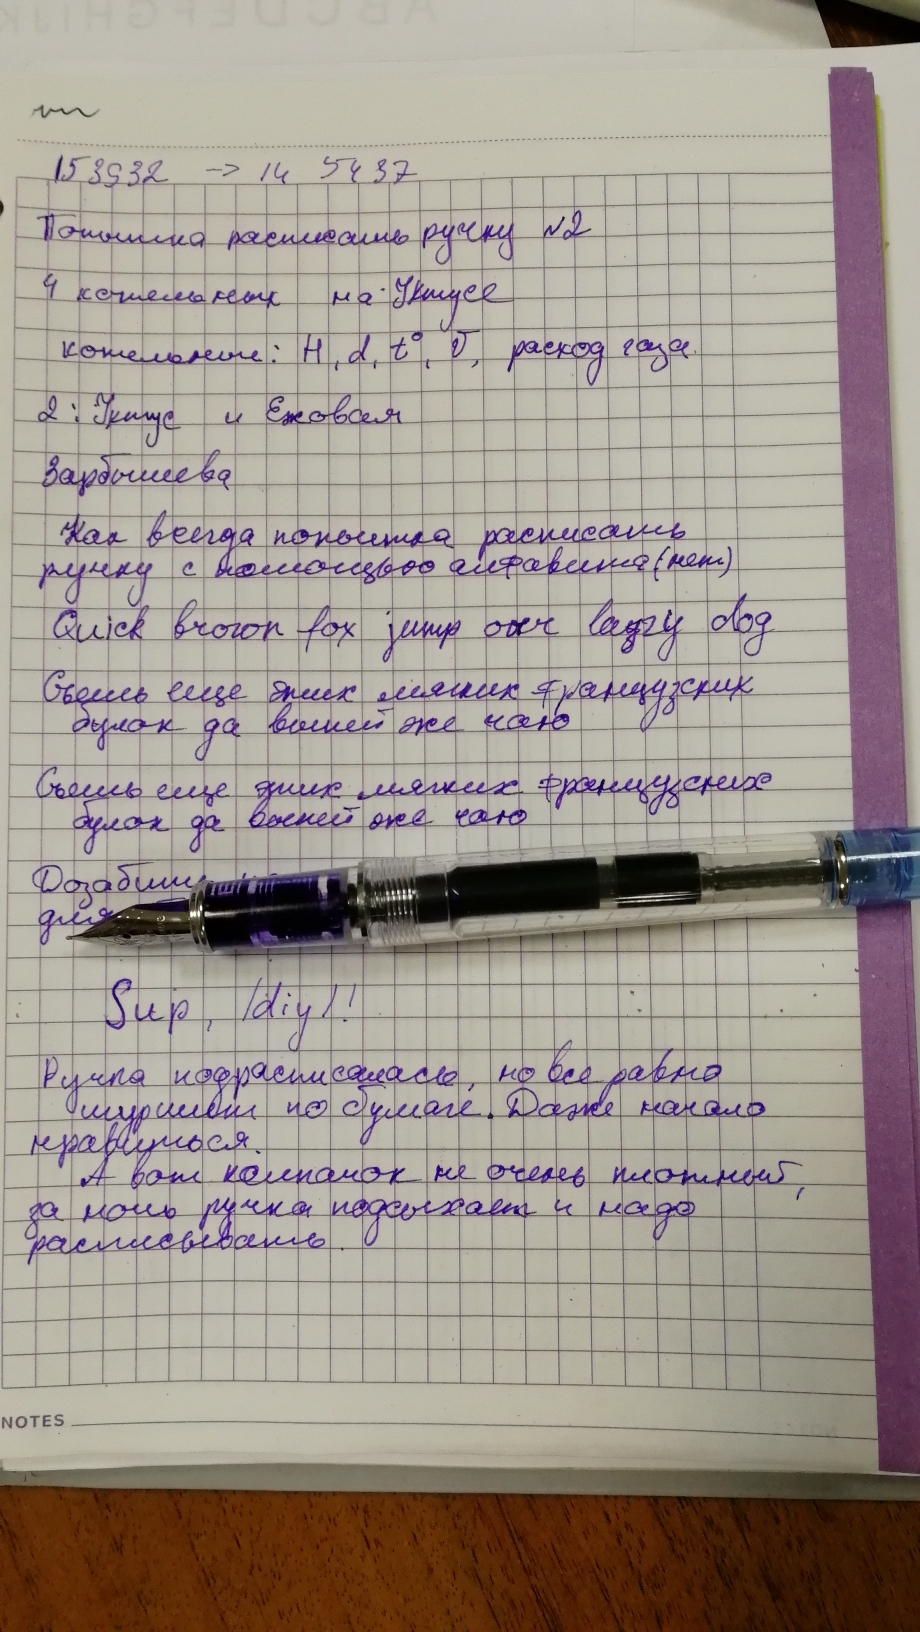 ABCDEFGHIJK
153932 -> 14 5437
Попытка расписать ручку №2
4 котельных на Уктусе
котельные: H, d, t°, V, расход газа.
2: Уктус и Ежовая
Зарбышева
Как всегда попытка расписать
ручку с помощью алфавита (нет)
Quick brown fox jump over lazy dog
Съешь еще этих мягких французских
булок да выпей же чаю
Съешь еще этих мягких французских
булок да выпей же чаю
для
Sup, /diy/!
Ручка подрасписалась, но все равно
шуршит по бумаге. Даже начало
нравиться.
А вот колпачок не очень плотный,
за ночь ручка подсыхает и надо
расписывать.
NOTES